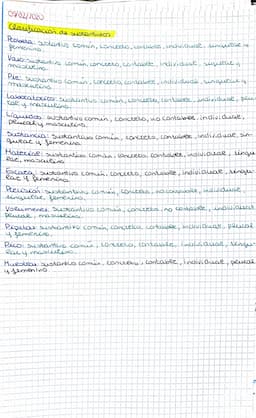 05/02/2020
Clasificación de sustantivos
Probeta: sustantivo común, concreto, contable, individual, singular y
femenino.
Vaso: sustantivo común, concreto, contable, individual, singular y
masculino.
Pie: sustantivo común, concreto, contable, individual, singular y
masculino.
Laboratorios: sustantivo común, concreto, contable, individual, plu
ral y masculino.
Líquidos: sustantivo común, concreto, no contable, individual,
plural y masculino.
Sustancia: sustantivo común, concreto, contable, individual, sin
gular y femenino.
Material: sustantivo común, concreto, contable, individual, singu
lar, masculino.
Escala: sustantivo común, concreto, contable, individual, singu
lar y femenino.
Precisión: sustantivo común, concreto, no contable, individual,
singular, femenino.
Volúmenes: sustantivo común, concreto, no contable, individual
plural, masculino.
Reglas: sustantivo común, concreto, contable, individual, plural
y femenino.
Pico: sustantivo común, concreto, contable, individual, singu
lar y masculino.
sustantivo común, concreto, contable, individual, plural
y femenino